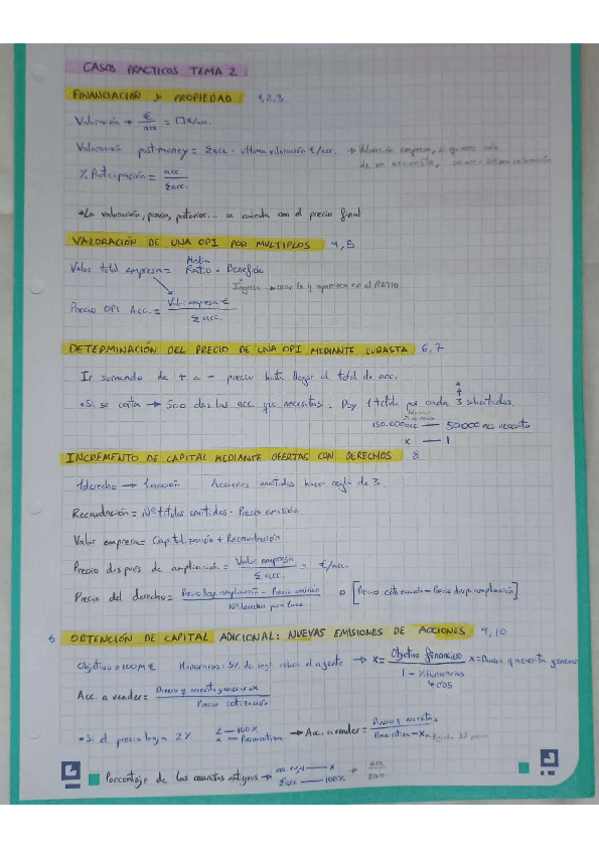 CASOS PRACTICOS TEMA 2
FINANCIACIÓN Y PROPIEDAD 1,2,3
Valoración → €/acc = □€/acc.
Valoración postmoney = Σacc · última valoración €/acc. → Valoración empresa, si quieres sola
de un accionista, sus acc · última valoración
% Participación = acc./Σacc.
•La valoración, previa, posterior... se calcula con el precio final
VALORACIÓN DE UNA OPI POR MULTIPLOS 4,5
Media
Valor total empresa = Ratio · Beneficio
Ingreso → usar la q aparezca en el RATIO
Precio OPI Acc. = Valor empresa €/Σ acc.
DETERMINACIÓN DEL PRECIO DE UNA OPI MEDIANTE SUBASTA 6,7
Ir sumando de + a - precio hasta llegar al total de acc.
x
•Si se corta → Solo das las acc que necesitas. Doy 1 título por cada 3 solicitados
150.000 acc — 50.000 acc necesito
x — 1
INCREMENTO DE CAPITAL MEDIANTE OFERTAS CON DERECHOS 8
1 derecho → 1 acción Acciones emitidas hacer regla de 3.
Recaudación = Nº títulos emitidos · Precio emisión
Valor empresa = Capitalización + Recaudación
Precio después de ampliación = Valor empresa/Σ acc. = €/acc.
Precio del derecho = Precio desp. ampliación - Precio emisión/Nº derechos para 1 acc o [Precio cotización - Precio desp. ampliación]
OBTENCIÓN DE CAPITAL ADICIONAL: NUEVAS EMISIONES DE ACCIONES 9,10
Objetivo = 100M€ Honorarios: 5% de ingr. sobre el agente → x = Objetivo financiero/1 - % Honorarios x = Dinero q necesita generar
↳ 0'05
Acc. a vender = Dinero q necesita generar x/Precio cotización
•Si el precio baja 2% 2 — 100% x — Precio cotiza → Acc. a vender = Dinero q necesitas/Precio cotiza - x → Bajada del precio
Porcentaje de los accionistas antiguos → acc. — x Σacc — 100% → acc/Σacc